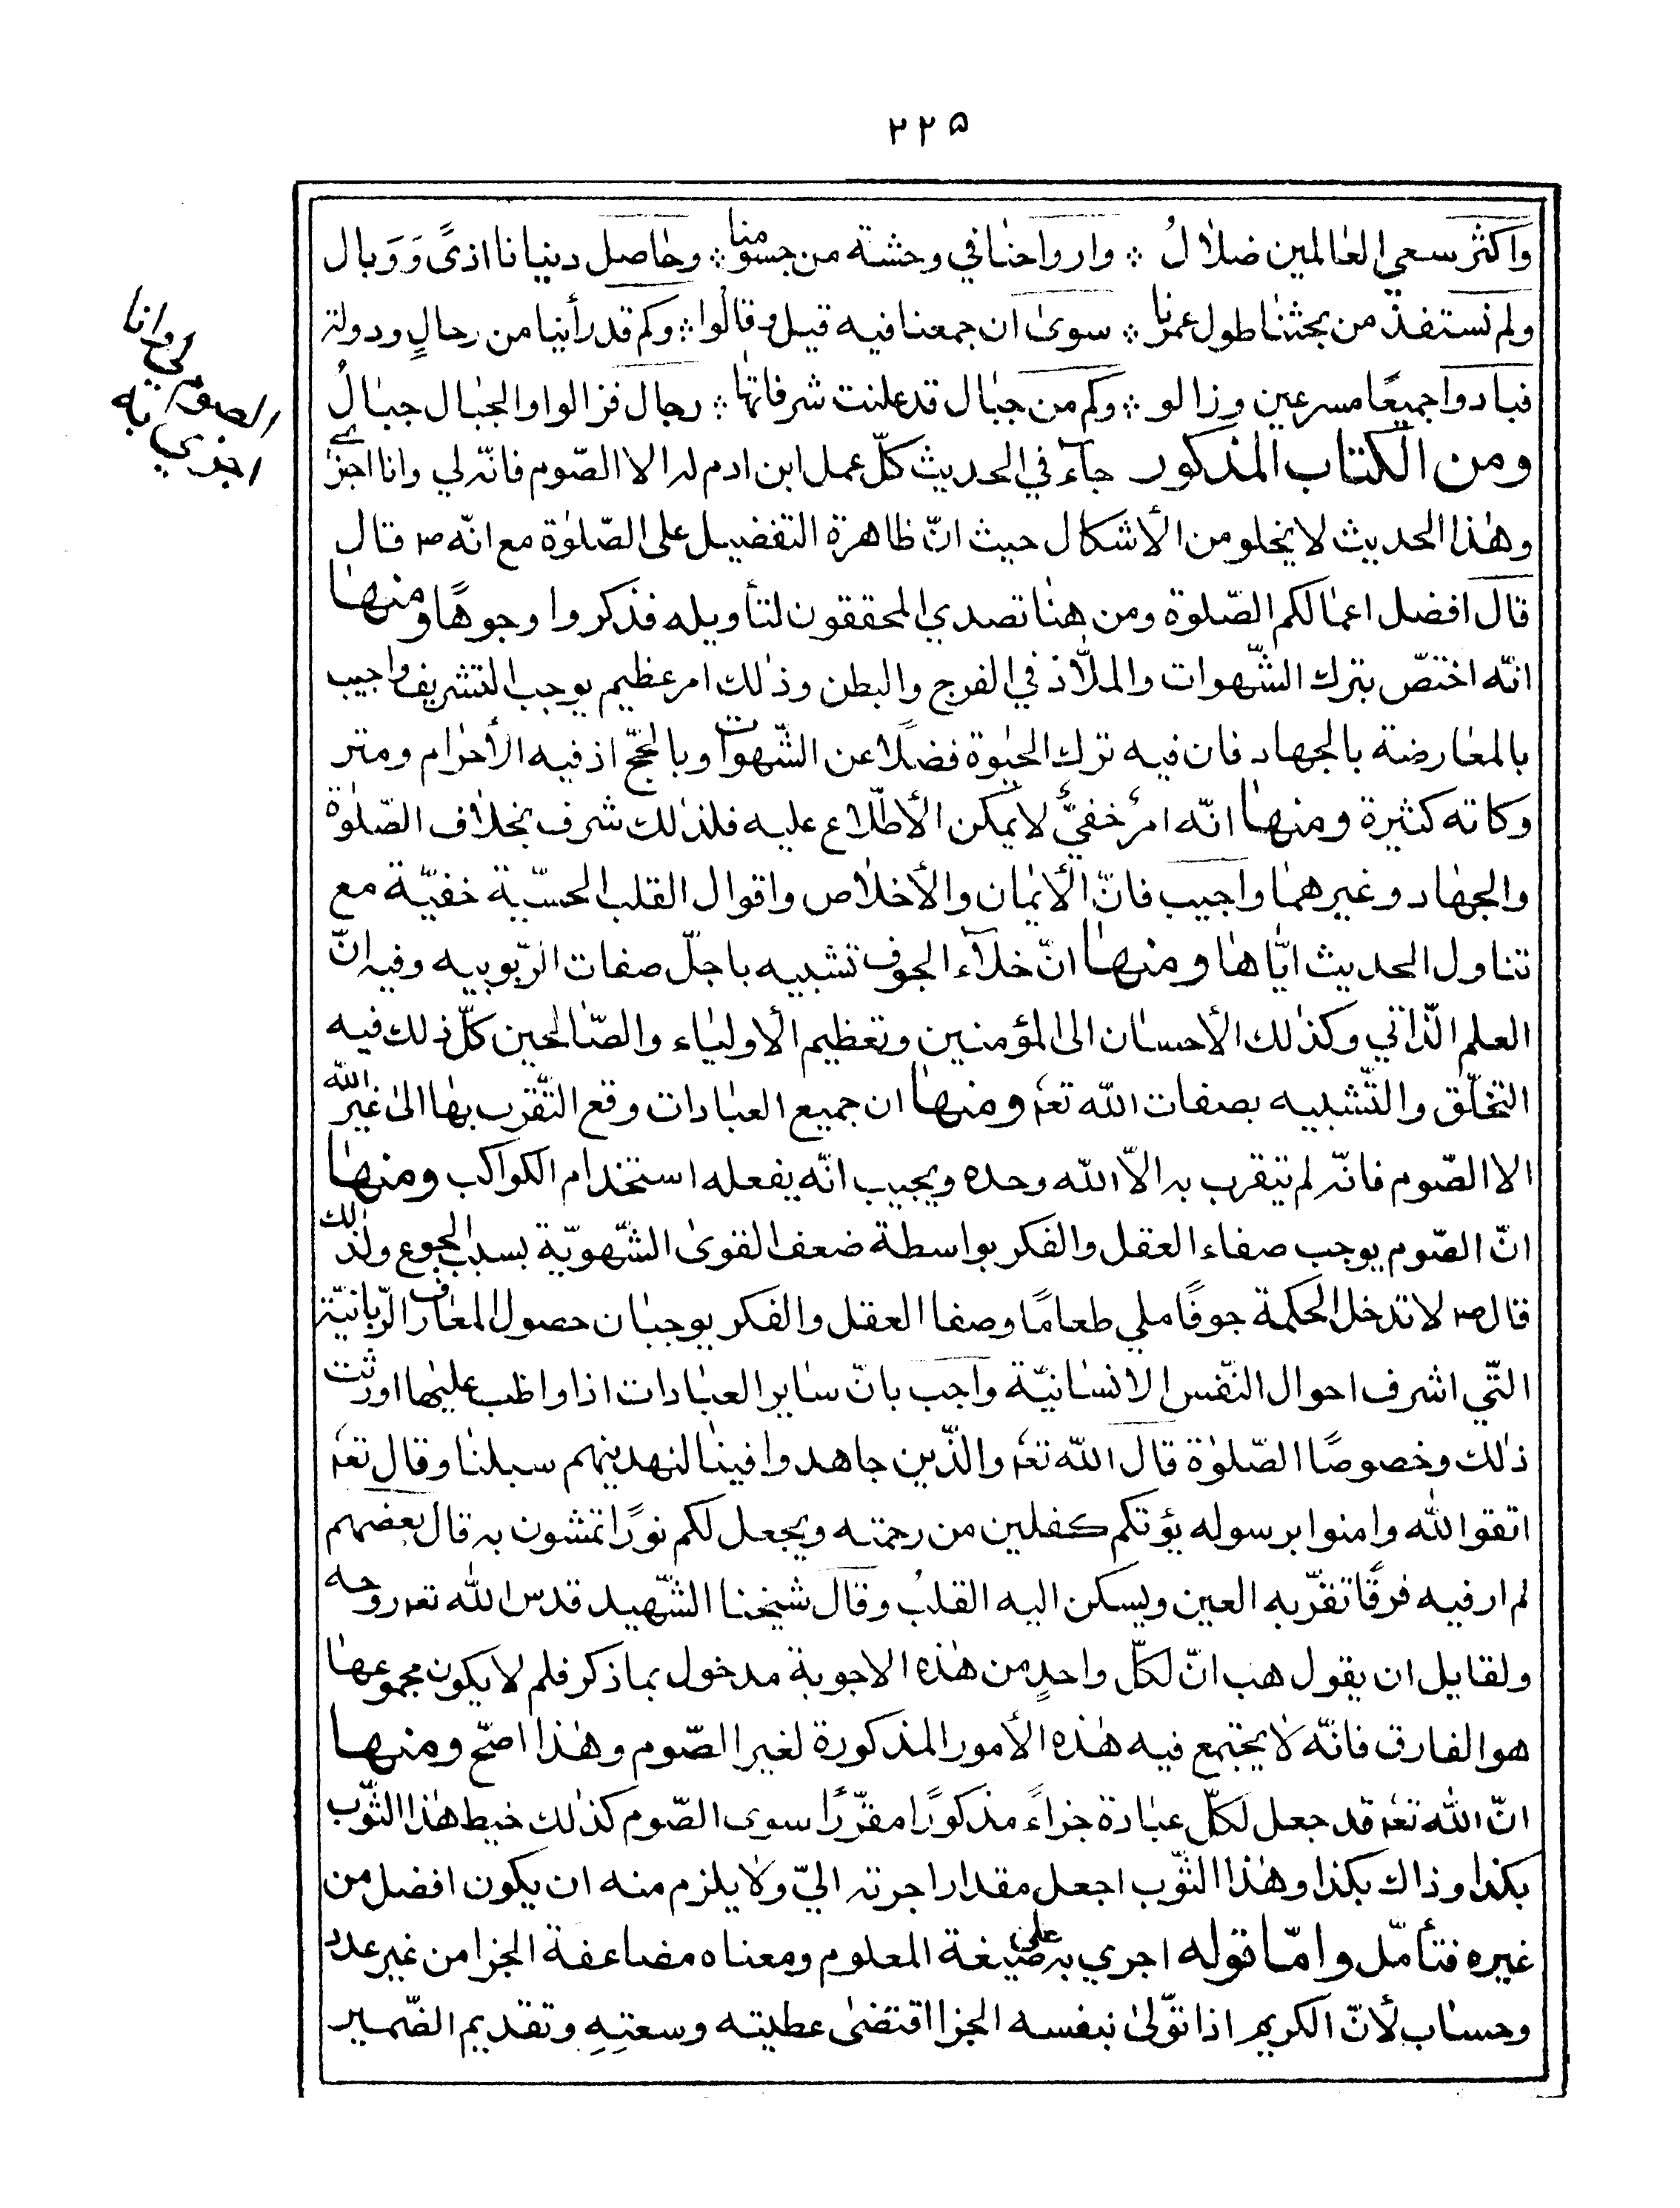 ٢٢٥
واكثر سعي العالمين ضلالُ ∴ وارواحنا في وحشة من جسومنا ∴ وحاصل دنيانا اذىً وَوَبال
ولم نستفد من بحثنا طول عمرنا ∴ سوى ان جمعنا فيه قيل وقالوا ∴ وكم قد رأينا من رجالٍ ودولة
فبادوا جميعًا مسرعين وزالو ∴ وكم من جبال قد علنت شرفاتها ∴ رجال فزالوا والجبال جبالُ
ومن الكتاب المذكور جآء في الحديث كلّ عمل ابن ادم له الا الصّوم فانّه لي وانا اجزي
وهذا الحديث لا يخلو من الأشكال حيث انّ ظاهرة التفضيل على الصّلوٰة مع انّه ص قال
قال افضل اعمالكم الصّلوة ومن هنا تصدي المحققون لتأويله فذكروا وجوهًا ومنها
انّه اختصّ بترك الشّهوات والملاّذ في الفرج والبطن وذلك امر عظيم يوجب التشريف واجيب
بالمعارضة بالجهاد فان فيه ترك الحيٰوة فضلًا عن الشّهوات وبالحجّ اذ فيه الأحرام ومتر
وكاته كثيرة ومنها انّه امرٌ خفيٌّ لا يمكن الأطّلاع عليه فلذلك شرف بخلاف الصّلوٰة
والجهاد وغيرهما واجيب فانّ الأيمان والأخلاص واقوال القلب الحسّية خفيّة مع
تناول الحديث ايّاها ومنها انّ خلآء الجوف تشبيه باجلّ صفات الرّبوبيه وفيه انّ
العلم الذّاتي وكذلك الأحسان الى المؤمنين وتعظيم الأولياء والصّالحين كلّ ذلك فيه
التخلّق والتّشبيه بصفات الله تعٰ ومنها ان جميع العبادات وقع التّقرب بها الى غير الله
الا الصّوم فانّه لم يتقرب به الاّ الله وحده ويجيب انّه يفعله استخدام الكواكب ومنها
انّ الصّوم يوجب صفاء العقل والفكر بواسطة ضعف القوى الشّهويّة بسبب الجوع ولذلك
قال ص لا تدخل الحكمة جوفًا ملي طعامًا وصفا العقل والفكر يوجبان حصول المعارف الرّبانيّة
التّي اشرف احوال النّفس الانسانيّة واجب بانّ ساير العبادات اذا واظب عليها اورثت
ذلك وخصوصًا الصّلوٰة قال الله تعٰ والذّين جاهدوا فينا لنهدينهم سبلنا وقال تعٰ
اتقوا الله وامنوا برسوله يؤتكم كفلين من رحمته ويجعل لكم نورًا تمشون به قال بعضهم
لم ار فيه فرقًا تقرّ به العين ويسكن اليه القلبُ وقال شيخنا الشّهيد قدس الله تعٰ روحه
ولقايل ان يقول هب انّ لكلّ واحدٍ من هذه الاجوبة مدخول بما ذكر فلم لا يكون مجموعها
هو الفارق فانّه لا يجتمع فيه هذه الأمور المذكورة لغير الصّوم وهذا اصّح ومنها
انّ الله تعٰ قد جعل لكلّ عبادة جزاءً مذكورًا مقرّرًا سوى الصّوم كذلك خيط هذا الثّوب
بكذا وذاك بكذا وهذا الثّوب اجعل مقدار اجرته اليّ ولا يلزم منه ان يكون افضل من
غيره فتأمّل وامّا قوله اجري به على صيغة المعلوم ومعناه مضاعفة الجزا من غير عدد
وحساب لأنّ الكريم اذا تولّى بنفسه الجزا اقتضى عطيته وسعتِهِ وتقديم الضّمير
لي وانا
الصوم
اجزي به